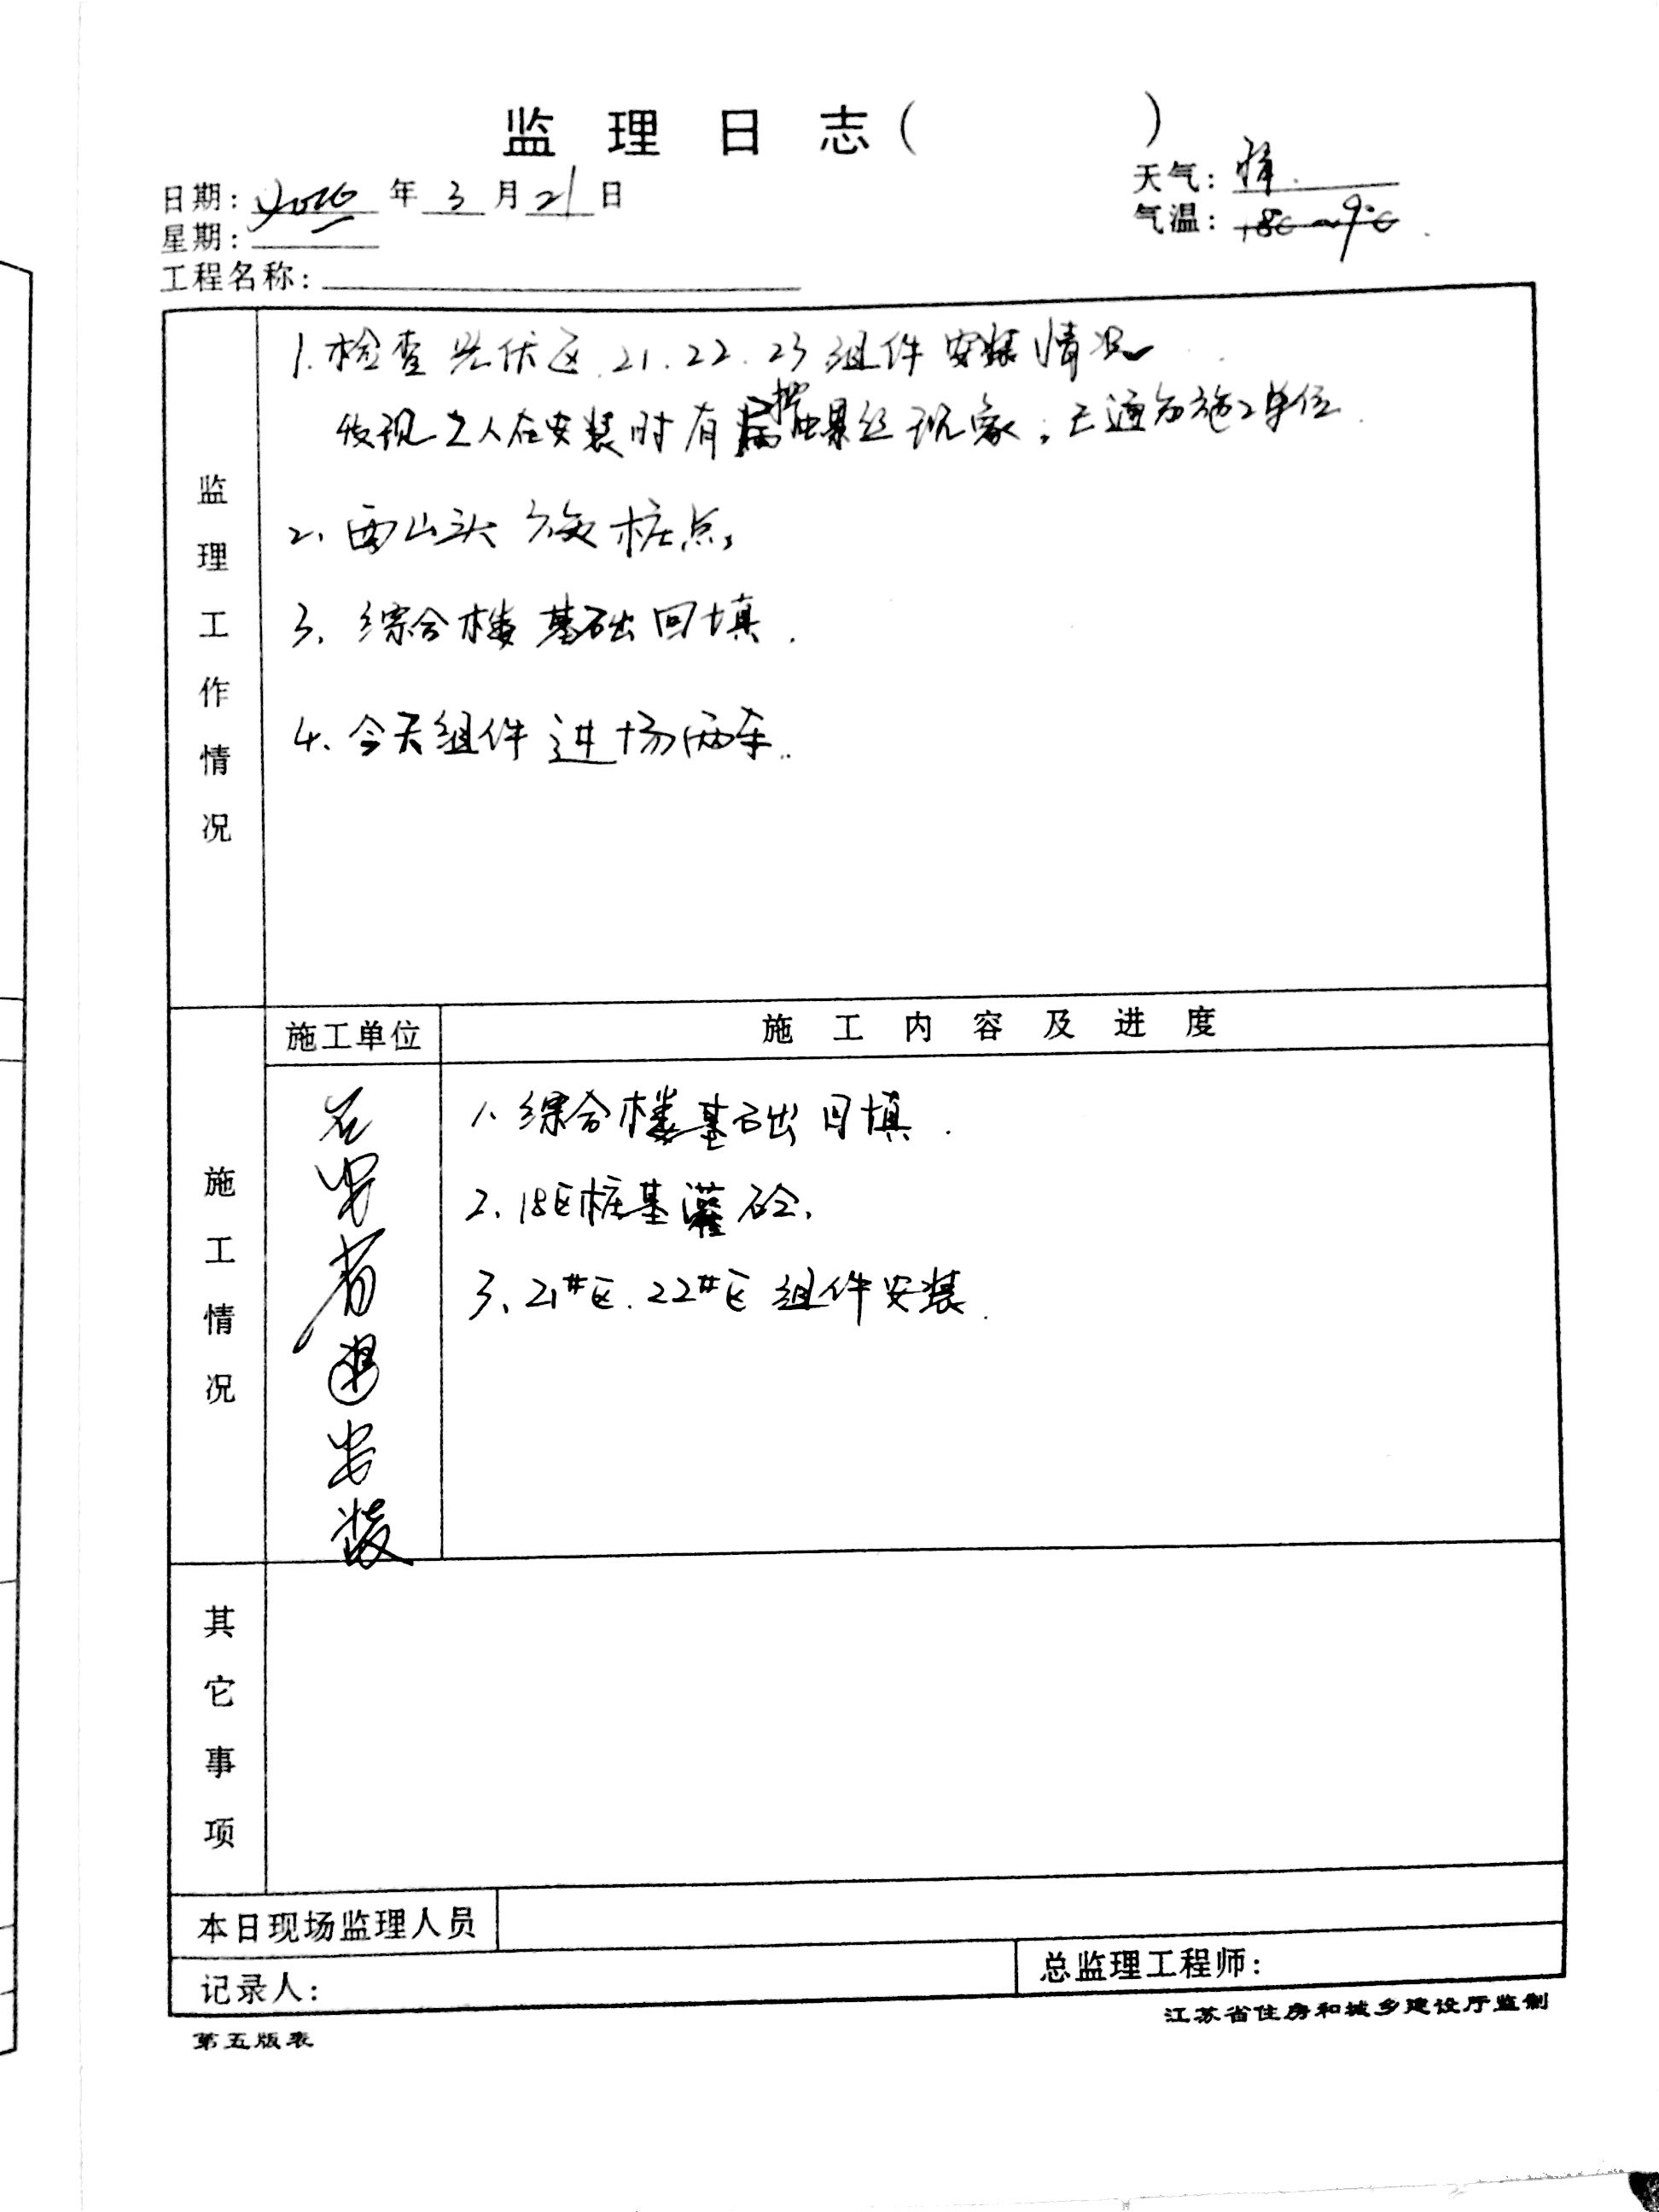 监理日志（　　　）
日期：2016年3月21日
天气：
星期：
气温：18℃～9℃
工程名称：
监理工作情况
1.检查光伏区.21.22.23组件安装情况
发现工人在安装时有螺丝现象，已通知施工单位.
2、西山头放桩点，
3、综合楼基础回填.
4、今天组件进场两车.
施工情况
施工单位
施工内容及进度
安装
1、综合楼基础回填.
2、18区桩基灌砼，
3、21#区.22#区组件安装.
其它事项
本日现场监理人员
记录人：
总监理工程师：
第五版表
江苏省住房和城乡建设厅监制